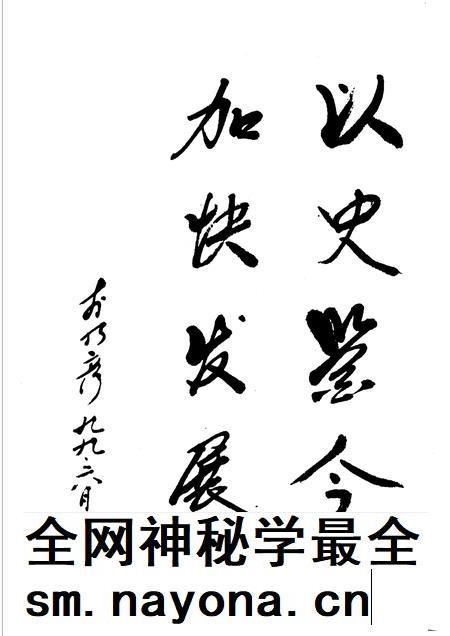 以史鉴今
加快发展
九九.六月
全网神秘学最全
sm.nayona.cn